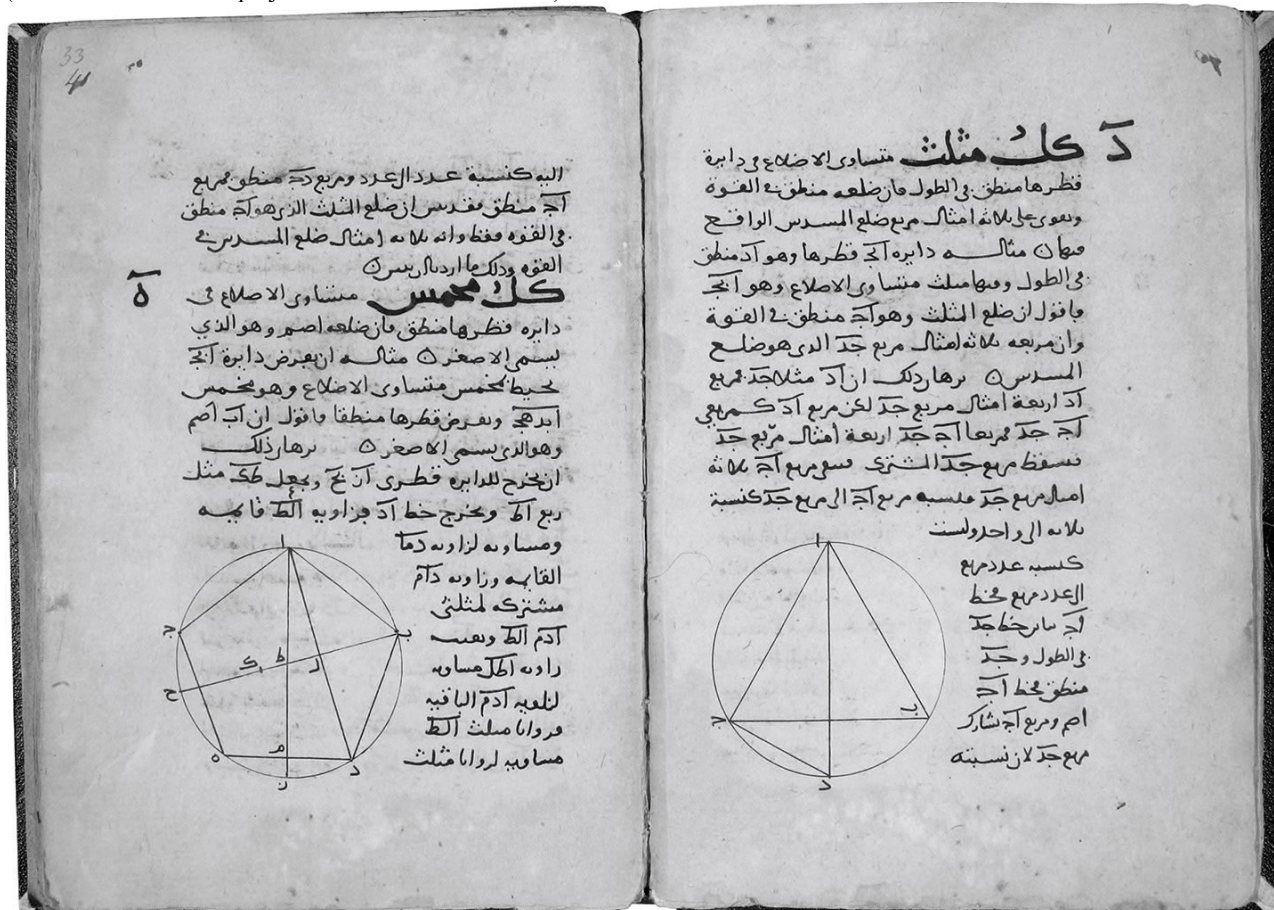 د
كل مثلث متساوى الاضلاع فى دايرة
قطرها منطق فى الطول فان ضلعه منطق فى القوة
ويقوى على ثلاثة امثال مربع ضلع المسدس الواقع
فيها ن مثاله دايره اٮجـ قطرها وهو اد منطق
فى الطول وفيها مثلث متساوى الاضلاع وهو ابجـ
فاقول ان ضلع المثلث وهو اجـ منطق فى القوة
وان مربعه ثلاثة امثال مربع جد الذى هو ضلع
المسدس ن برهان ذلك ان اد مثلا جد فمربع
اد اربعة امثال مربع جد لكن مربع اد كمربعى
اجـ جد فمربعا اجـ جد اربعة امثال مربع جد
يسقط مربع جد المشترك فيبقى مربع اجـ ثلاثة
امثال مربع جد فنسبه مربع اجـ الى مربع جد كنسبة
ثلاثه الى واحد وليست
كنسبه عدد مربع
الى عدد مربع فخط
اجـ يباين خط جد
فى الطول و جد
منطق فخط اجـ
اصم ومربع اجـ يشارك
مربع جد لان نسبته
ا
ب
جـ
د
33
4
اليه كنسبة عدد الى عدد ومربع دجـ منطق فمربع
اجـ منطق فقد تبين ان ضلع المثلث الذى هو اجـ منطق
فى القوه فقط وانه ثلاثه امثال ضلع المسدس فى
القوه وذلك ما اردنا ان نبين ن
ه
كل مخمس متساوى الاضلاع فى
دايره قطرها منطق فان ضلعه اصم وهو الذي
يسمى الاصغر ن مثاله ان يفرض دايرة ابجـ
يحيط بمخمس متساوى الاضلاع وهو مخمس
ابدهجـ ويفرض قطرها منطقا فاقول ان اب اصم
وهو الذى يسمى الاصغر ن برهان ذلك
ان يخرج للدايره قطرى از بح ويجعل طك مثل
ربع اط ويخرج خط اد فزاويه الط قايمه
ومساويه لزاويه دما
القايمه وزاويه دام
مشتركه لمثلثى
ادم الط وتبقى
زاويه اطل مساويه
لزاويه ادم الباقيه
فزوايا مثلث الط
مساويه لزوايا مثلث
ا
ب
جـ
ل
ط
ك
ح
م
ه
د
ز